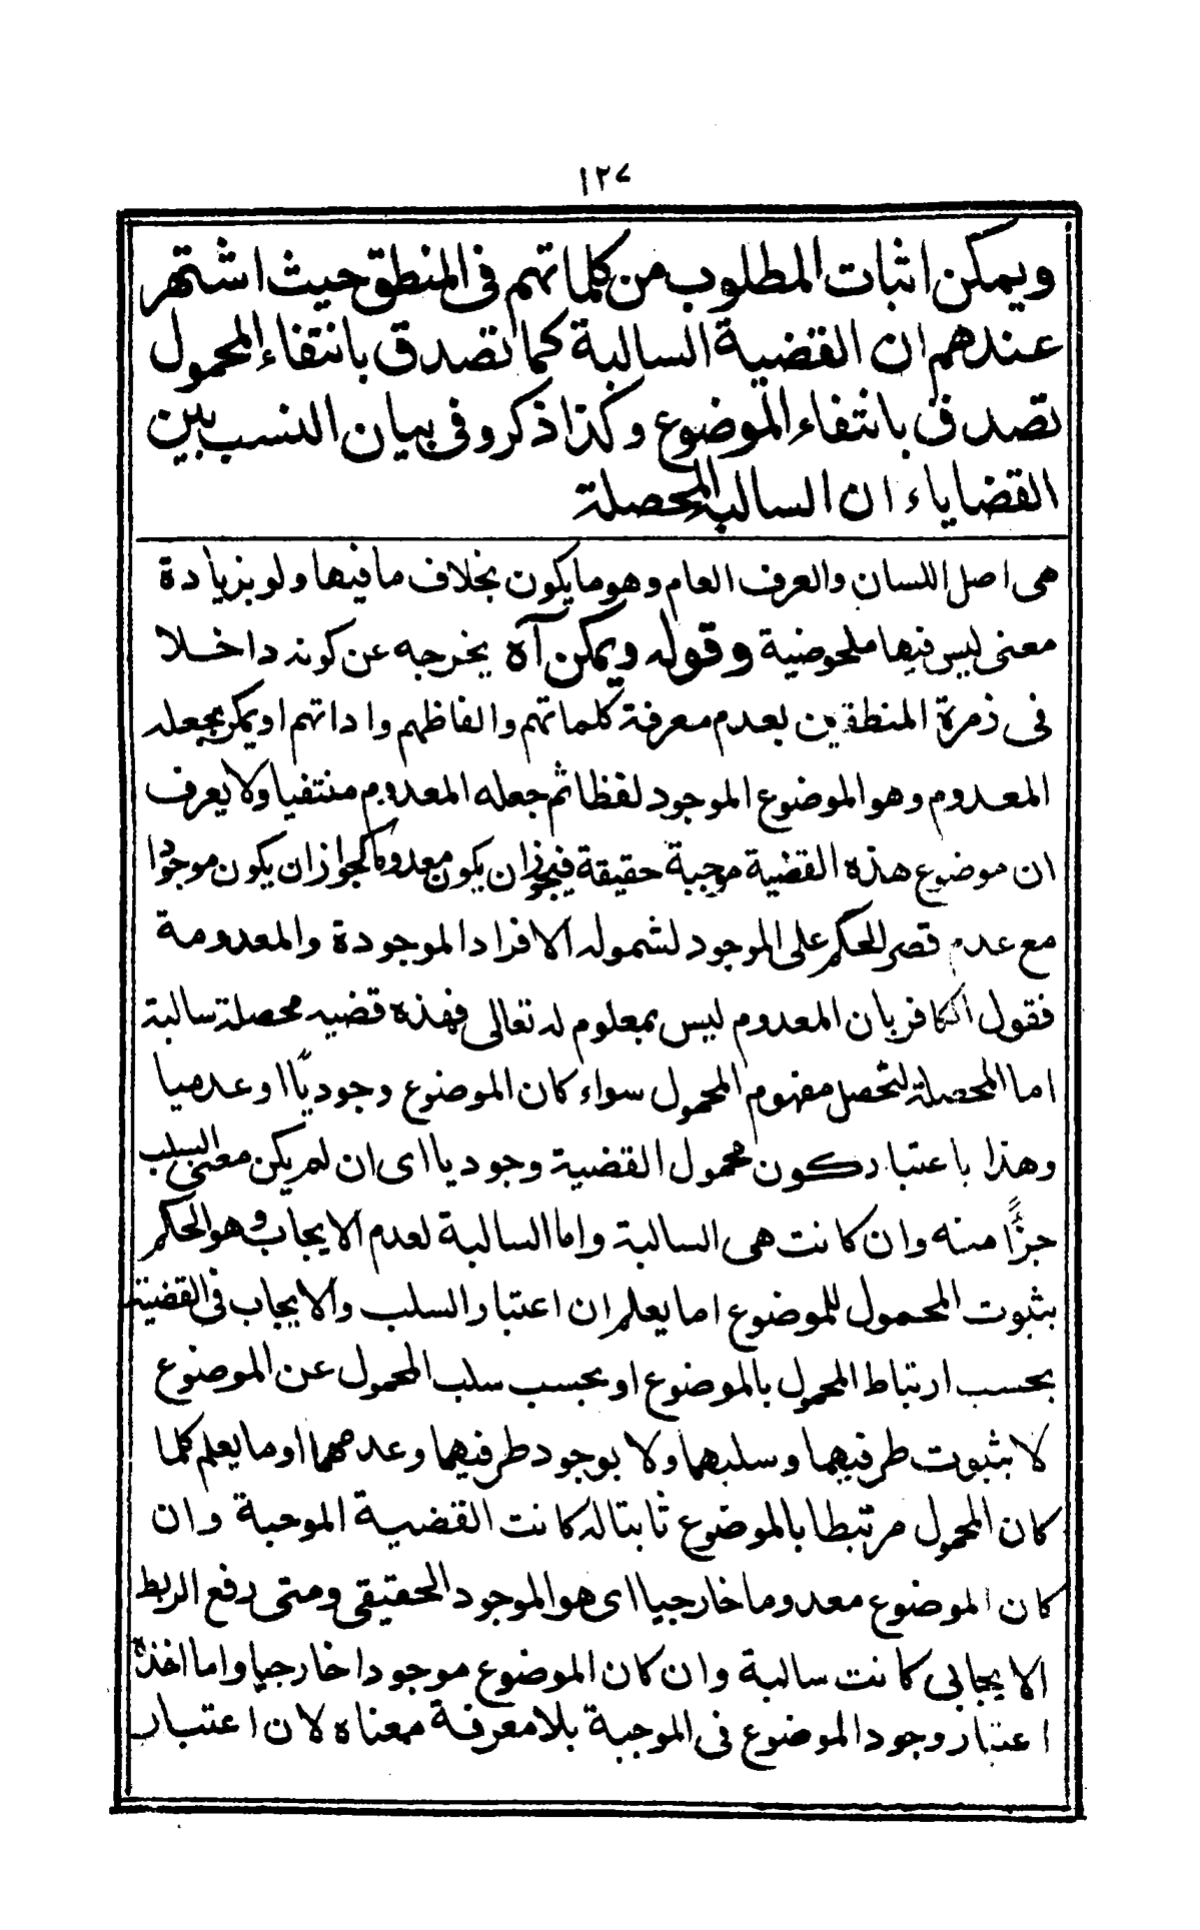 ١٢٧
ويمكن اثبات المطلوب من كلماتهم فى المنطق حيث اشتهر
عندهم ان القضية السالبة كما تصدق بانتفاء المحمول
تصدق بانتفاء الموضوع وكذا ذكر وفى بيان النسب بين
القضاياء ان السالبة المحصلة
هى اصل اللسان والعرف العام وهو ما يكون بخلاف ما فيها ولو بزيادة
معنى ليس فيها ملحوضية وقوله ويمكن آه يخرجه عن كونه داخلا
فى ذمرة المنطقين بعدم معرفة كلماتهم والفاظهم واداتهم او يمكن بجعله
المعدوم وهو الموضوع الموجود لفظا ثم جعله المعدوم منتفيا ولا يعرف
ان موضوع هذه القضية موجبة حقيقة فيجوز ان يكون معدوما كجواز ان يكون موجودا
مع عدم قصر الحكم على الموجود لشموله الافراد الموجودة والمعدومة
فقول الكافر بان المعدوم ليس بمعلوم له تعالى فهذه قضيه محصلة سالبة
اما المحصلة لتحصل مفهوم المحمول سواء كان الموضوع وجوديًا او عدميا
وهذا باعتبار كون محمول القضية وجوديا اى ان لم يكن معنى السلب
جزًا منه وان كانت هى السالبة واما السالبة لعدم الايجاب وهو الحكم
بثبوت المحمول للموضوع اما يعلم ان اعتبار السلب والايجاب فى القضية
بحسب ارتباط المحمول بالموضوع او بحسب سلب المحمول عن الموضوع
لا بثبوت طرفيها وسلبهما ولا بوجود طرفيهما وعدمهما او ما يعلم كلما
كان المحمول مرتبطا بالموضوع ثابتا له كانت القضية الموجبة وان
كان الموضوع معدوما خارجيا اى هو الموجود الحقيقى ومتى رفع الربط
الايجابى كانت سالبة وان كان الموضوع موجودا خارجيا واما اخذه
اعتبار وجود الموضوع فى الموجبة بلا معرفة معناه لان اعتبار